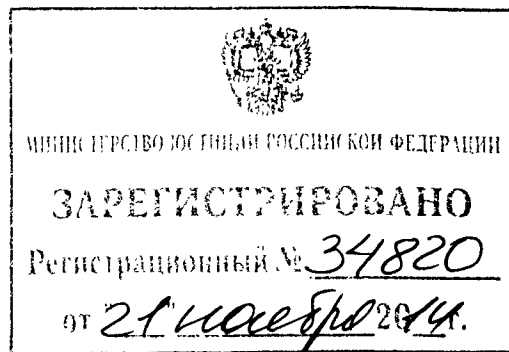 МИНИСТЕРСТВО ЮСТИЦИИ РОССИЙСКОЙ ФЕДЕРАЦИИ
ЗАРЕГИСТРИРОВАНО
Регистрационный № 34820
от "21" ноября 2014 г.